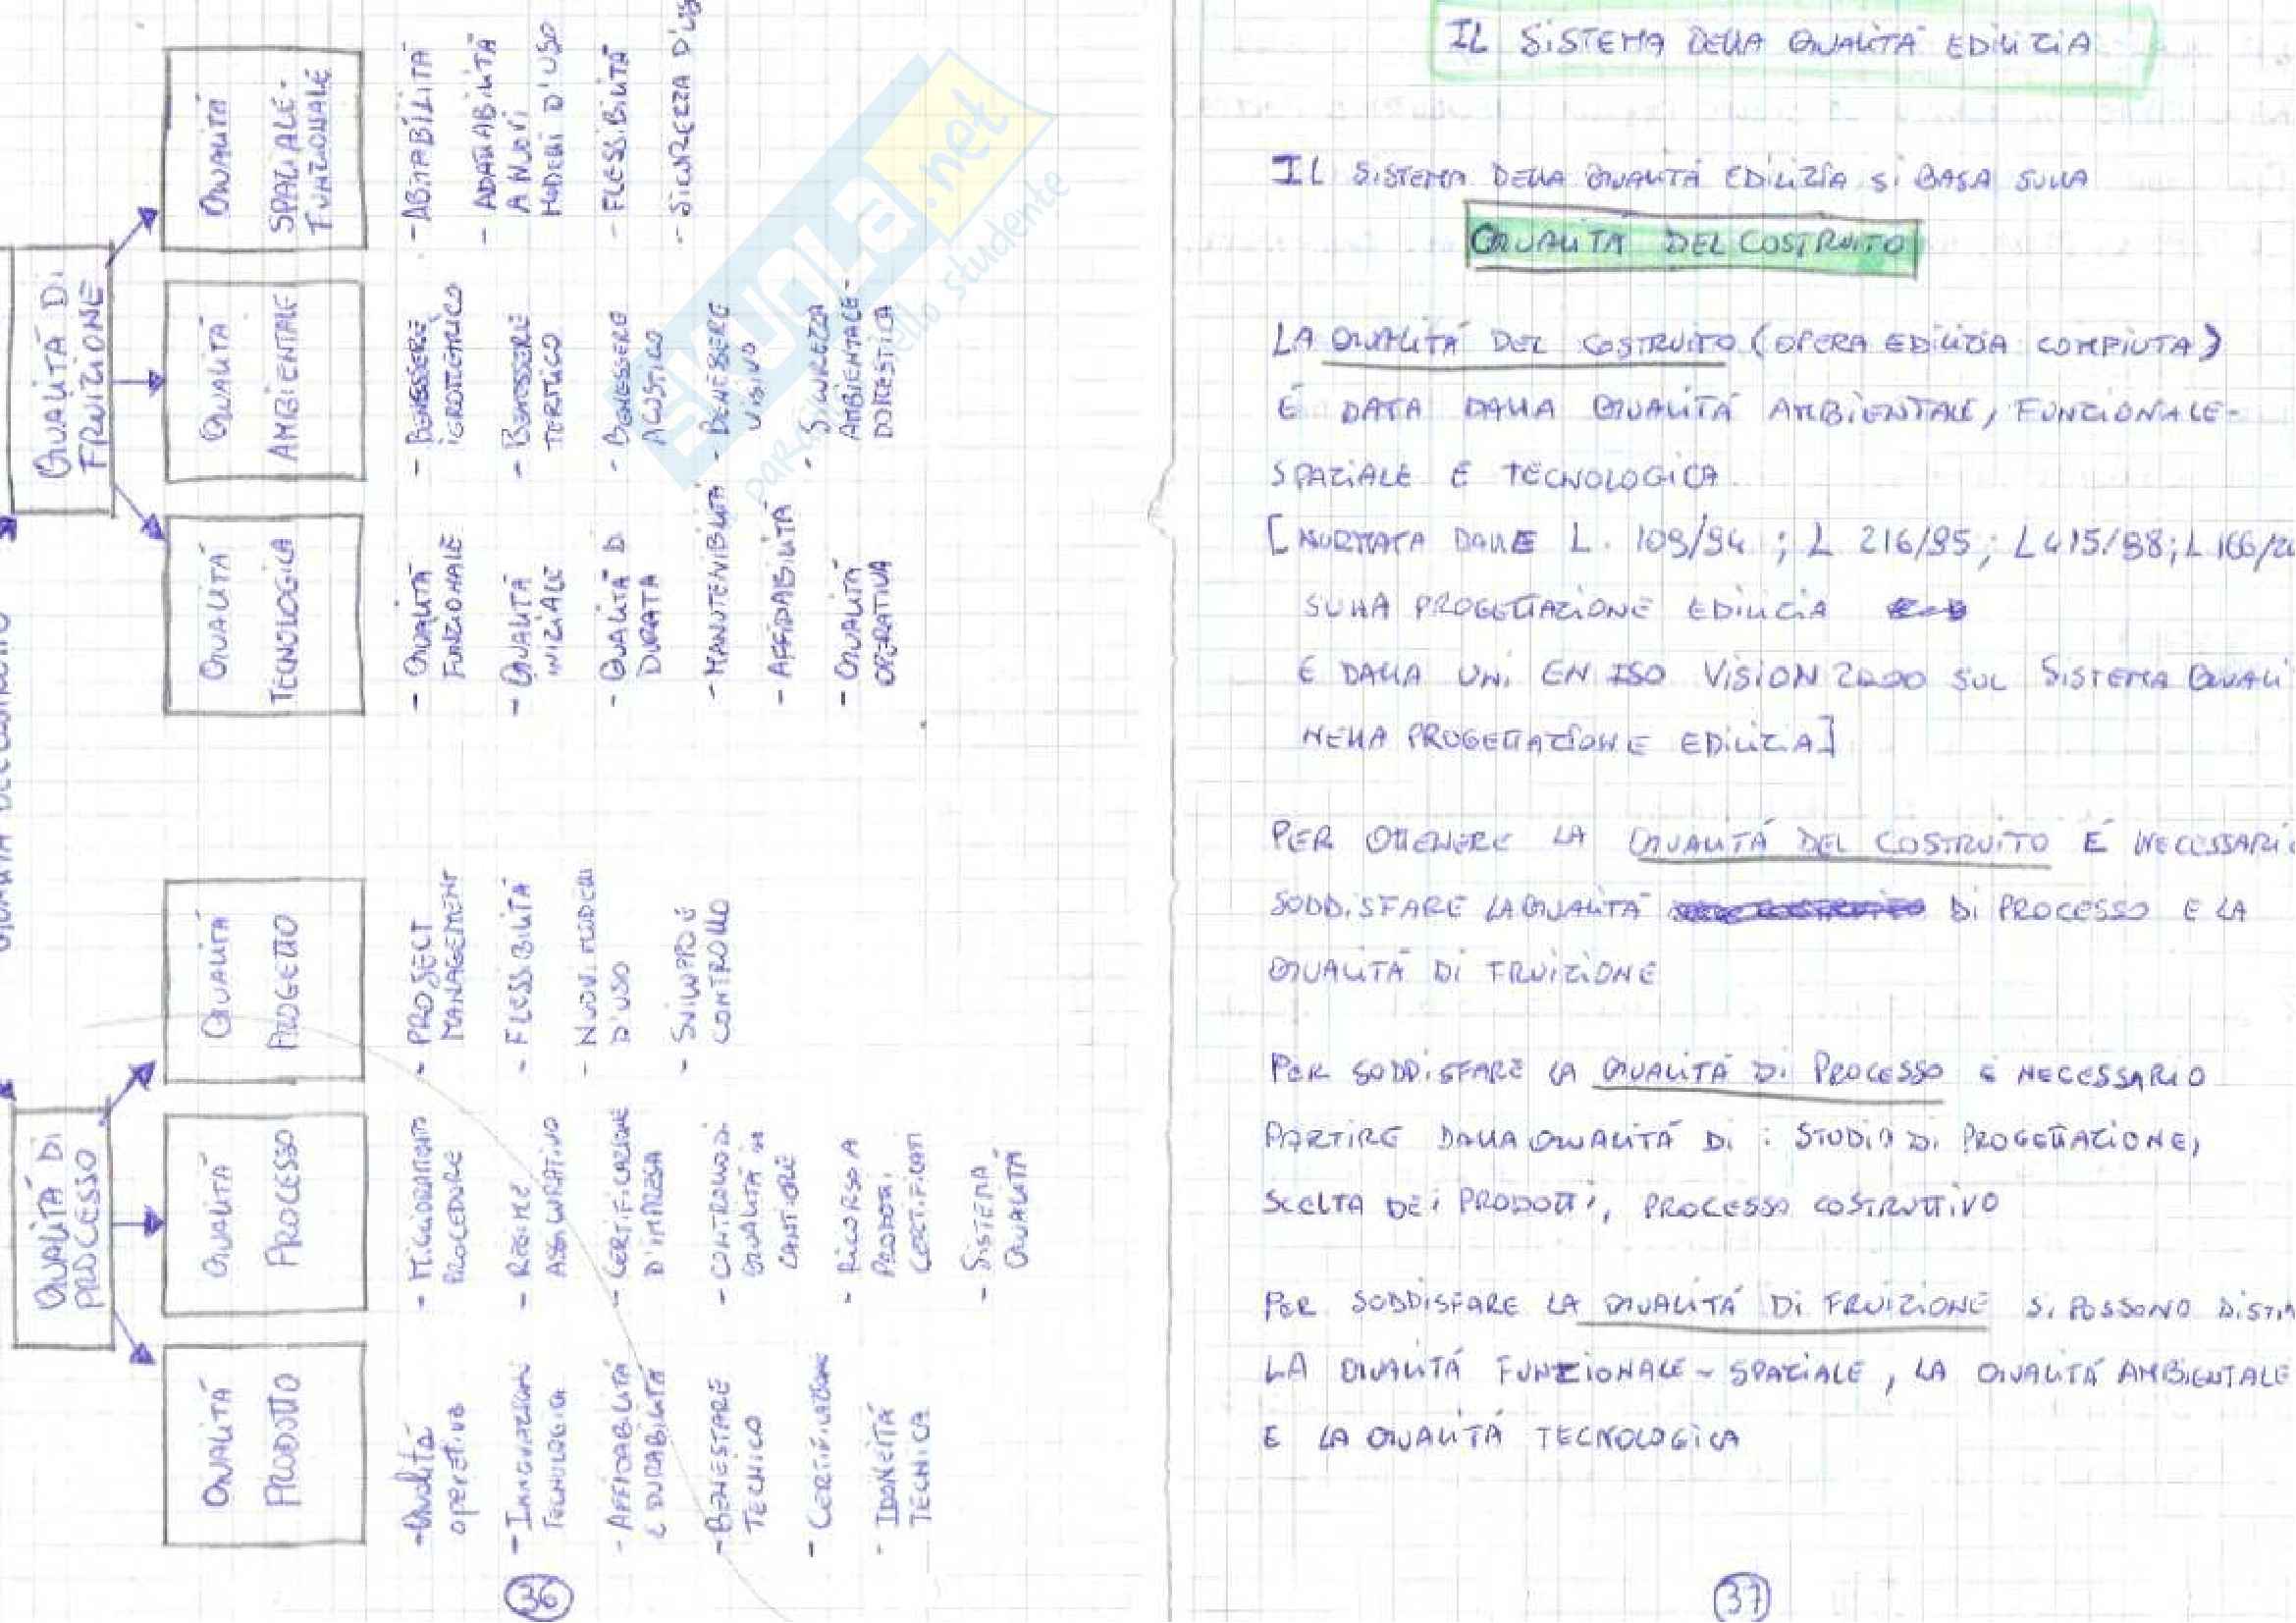 QUALITÀ DEL COSTRUITO
QUALITÀ DI
PROCESSO
QUALITÀ
PRODOTTO
- Qualità
operativa
- INNOVAZIONI
TECNOLOGICA
- AFFIDABILITÀ
E DURABILITÀ
- BENESTARE
TECNICO
- CERTIFICAZIONE
- IDONEITÀ
TECNICA
QUALITÀ
PROCESSO
- MIGLIORAMENTO
PROCEDURE
- REGIME
ASSICURATIVO
- CERTIFICAZIONE
D'IMPRESA
- CONTROLLO DI
QUALITÀ IN
CANTIERE
- RICORSO A
PRODOTTI
CERTIFICATI
- SISTEMA
QUALITÀ
QUALITÀ
PROGETTO
- PROJECT
MANAGEMENT
- FLESSIBILITÀ
- NUOVI MODELLI
D'USO
- SVILUPPO E
CONTROLLO
QUALITÀ DI
FRUIZIONE
QUALITÀ
TECNOLOGICA
- QUALITÀ
FUNZIONALE
- QUALITÀ
INIZIALE
- QUALITÀ DI
DURATA
- MANUTENIBILITÀ
- AFFIDABILITÀ
- QUALITÀ
OPERATIVA
QUALITÀ
AMBIENTALE
- BENESSERE
IGROMETRICO
- BENESSERE
TERMICO
- BENESSERE
ACUSTICO
- BENESSERE
VISIVO
- SICUREZZA
AMBIENTALE-
DOMESTICA
QUALITÀ
SPAZIALE-
FUNZIONALE
- ABITABILITÀ
- ADATTABILITÀ
A NUOVI
MODELLI D'USO
- FLESSIBILITÀ
- SICUREZZA D'US
36
SKUOLA.net
dello studente
IL SISTEMA DELLA QUALITÀ EDILIZIA
IL SISTEMA DELLA QUALITÀ EDILIZIA SI BASA SULLA
QUALITÀ DEL COSTRUITO
LA QUALITÀ DEL COSTRUITO (OPERA EDILIZIA COMPIUTA)
È DATA DALLA QUALITÀ AMBIENTALE, FUNZIONALE-
SPAZIALE E TECNOLOGICA.
[NORMATA DALLE L. 109/94 ; L 216/95 ; L 415/98 ; L 166/20
SULLA PROGETTAZIONE EDILIZIA
E DALLA UNI EN ISO VISION 2000 SUL SISTEMA QUALI
NELLA PROGETTAZIONE EDILIZIA]
PER OTTENERE LA QUALITÀ DEL COSTRUITO È NECESSARIO
SODDISFARE LA QUALITÀ DI PROCESSO E LA
QUALITÀ DI FRUIZIONE
PER SODDISFARE LA QUALITÀ DI PROCESSO È NECESSARIO
PARTIRE DALLA QUALITÀ DI : STUDIO DI PROGETTAZIONE,
SCELTA DEI PRODOTTI, PROCESSO COSTRUTTIVO
PER SODDISFARE LA QUALITÀ DI FRUIZIONE SI POSSONO DISTIN
LA QUALITÀ FUNZIONALE - SPAZIALE, LA QUALITÀ AMBIENTALE
E LA QUALITÀ TECNOLOGICA
37